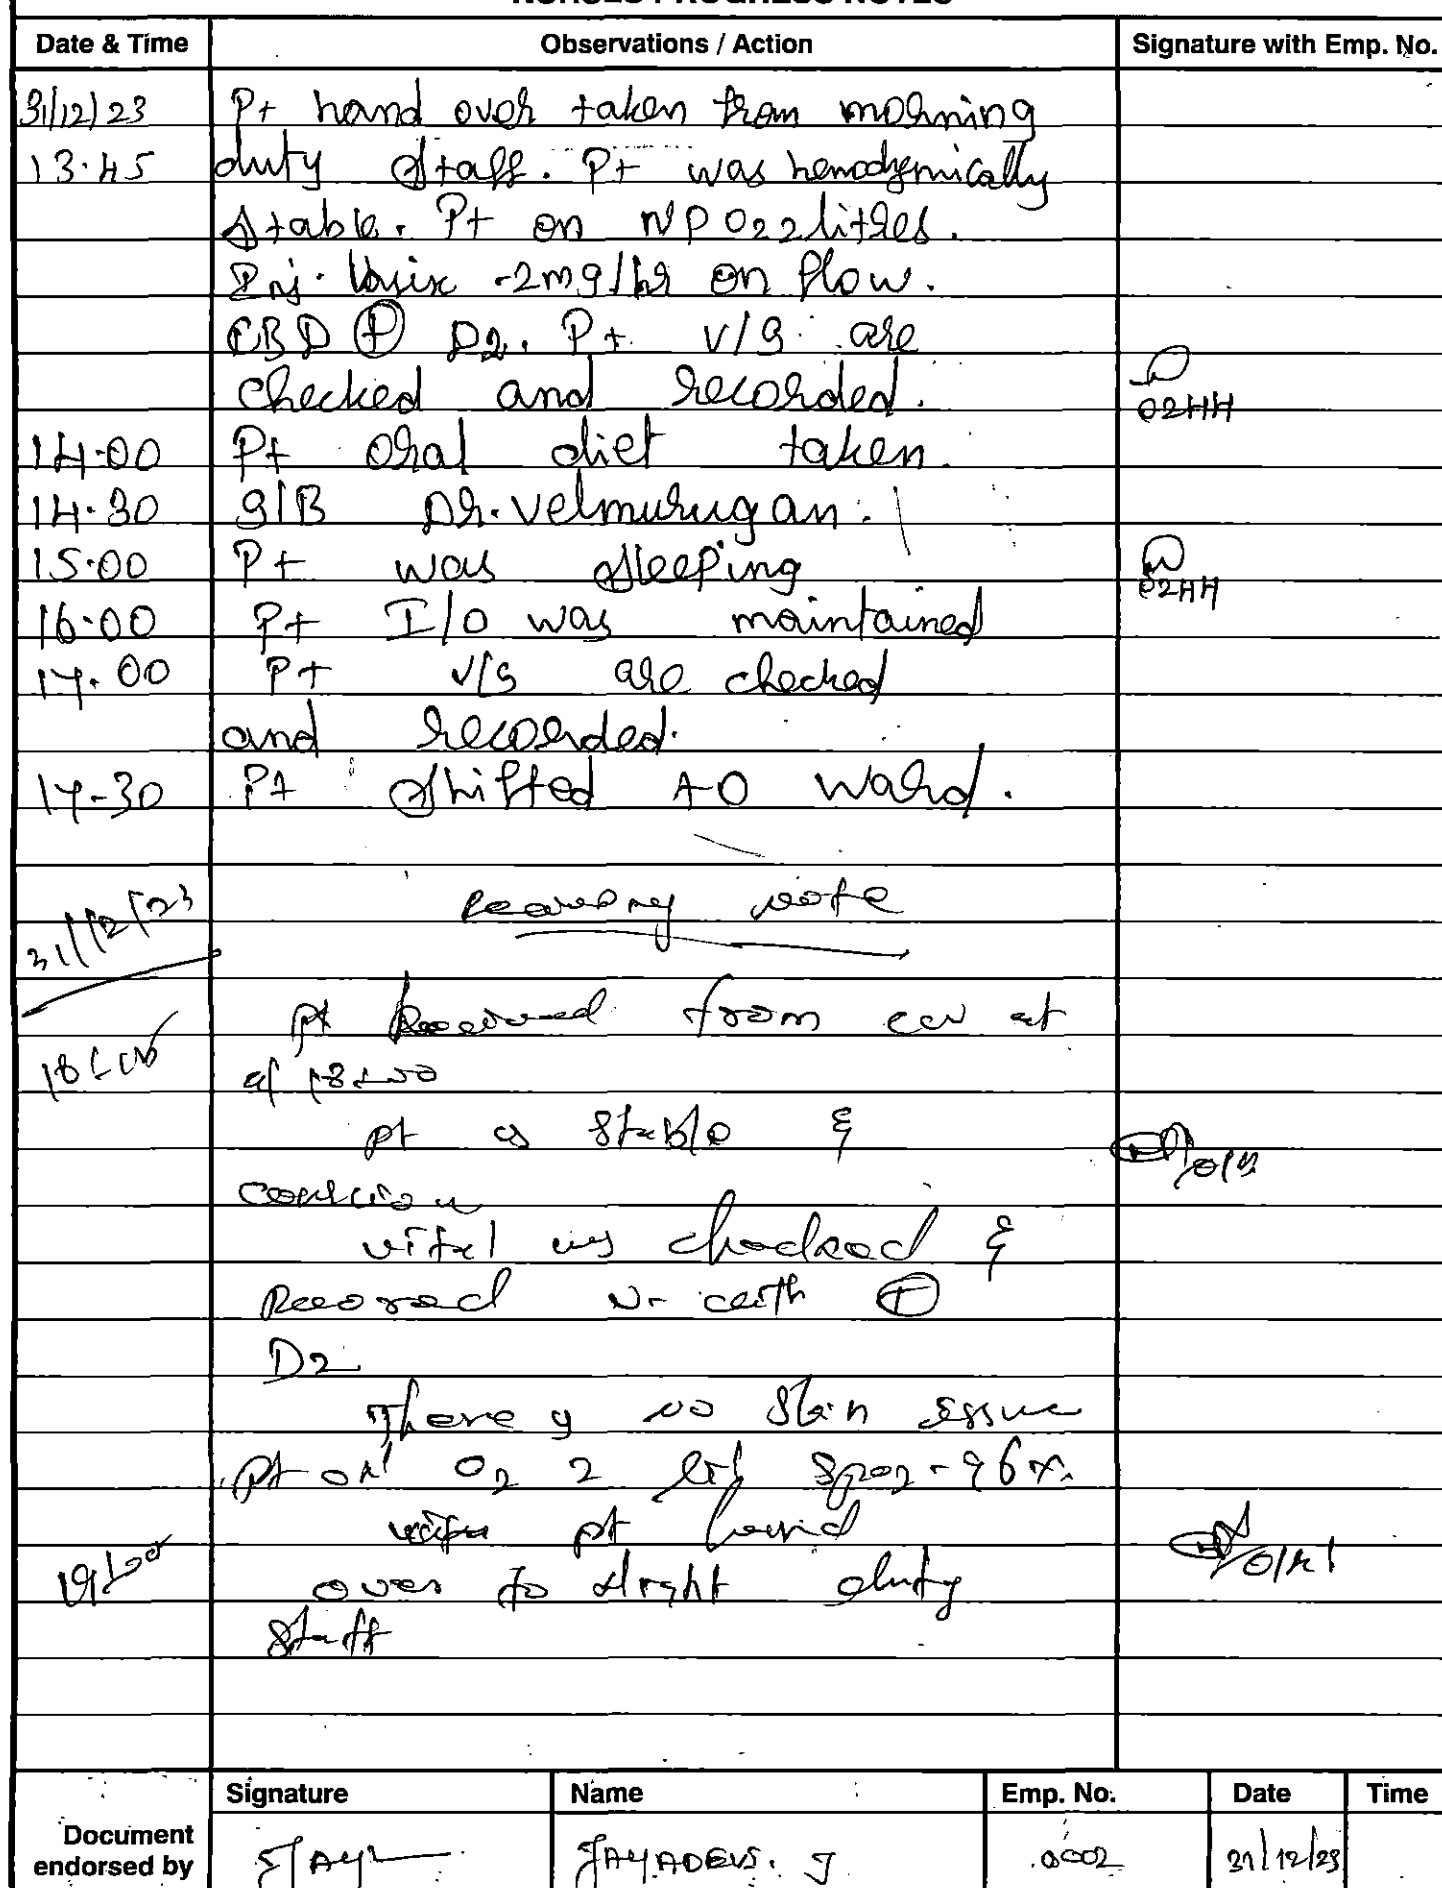 NURSES PROGRESS NOTES
Date & Time Observations / Action Signature with Emp. No.
31/12/23 Pt hand over taken from morning
13.45 duty staff. Pt was hemodymically
stable. Pt on NP O2 2 litres.
Inj. Lasix -2mg/hr on flow.
CBD + D2. Pt v/s are
checked and recorded.
0244
14.00 Pt oral diet taken.
14.30 S/B Dr. Velmurugan.
15.00 Pt was sleeping
0244
16.00 Pt I/O was maintained
17.00 Pt v/s are checked
and recorded.
17-30 Pt shifted to ward.
31/12/23 note
Pt Received from at
at
pt is stable &
vital checked &
+
D2
There no skin issue
Pt on O2 2 lit spo2 - 96%
pt hand
over to night duty
staff
Signature Name Emp. No. Date Time
Document
endorsed by 0002 31/12/23